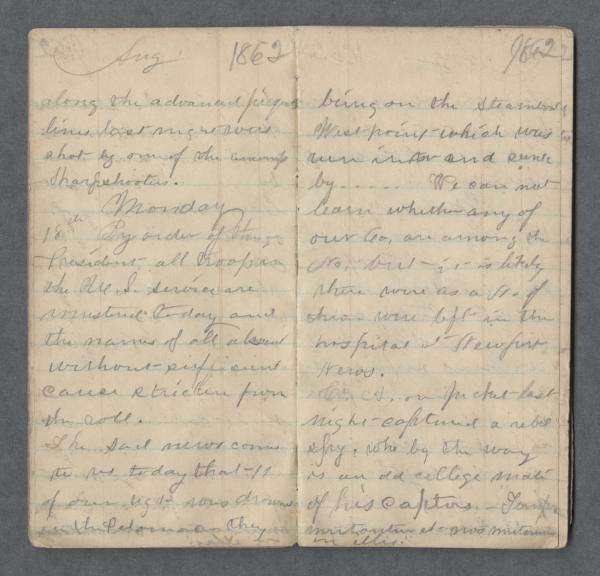 Aug 1862
along the advanced picquet
lines last night was
shot by one of the enemys
Sharpshooters.
Monday
18th By order of the
President all troops in
the U.S. service are
mustered today and
the names of all absent
without sufficient
cause stricken from
the roll.
The sad news comes
to us today that 11
of our Regt was drowned
in the Potomac they
1862
being on the Steamboat
West point which was
run into and sunk
by ..... We can not
learn whether any of
our Co, are among the
No, but it is likely
there were as a No. of
them were left in the
hospital at Newport
News.
on picket last
night captured a rebel
spy, who by the way
is an old college mate
of his captors.